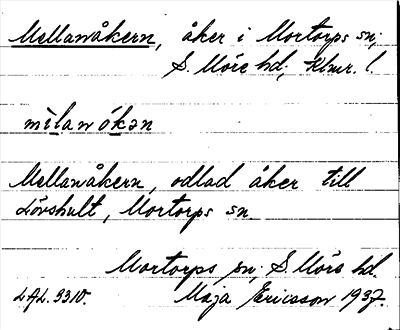 Mellanåkern, åker i Mortorps sn;
S. Möre hd, Klmr. l.
mìlanókən
Mellanåkern, odlad åker till
Lövshult, Mortorps sn
Mortorps sn; S. Möre hd.
L.A.L. 3310. Maja Ericsson 1937.